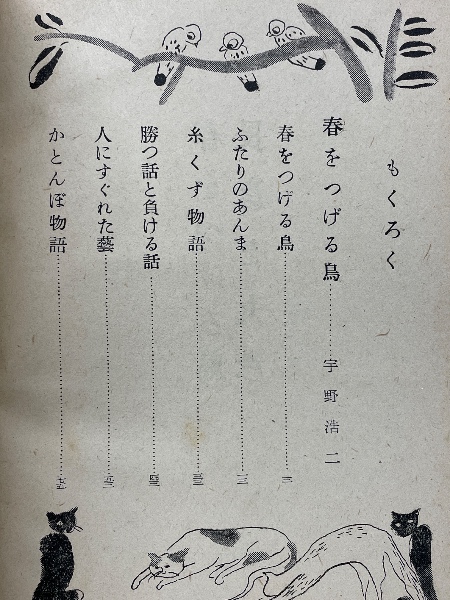 もくろく
春をつげる鳥 宇野浩二
春をつげる鳥
ふたりのあんま
糸くず物語
勝つ話と負ける話
人にすぐれた藝
かとんぼ物語